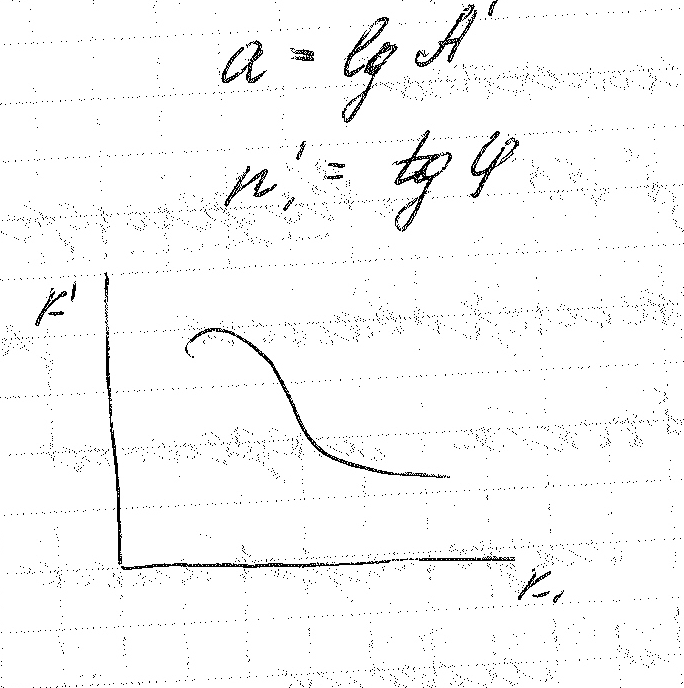 a = lg A'
n'₁ = tg φ
r'
r₁